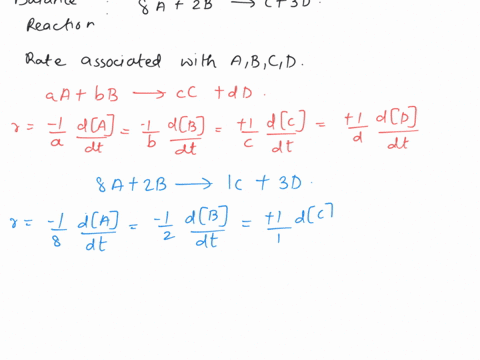 Balance : 8A + 2B → C + 3D.
Reaction
Rate associated with A, B, C, D.
aA + bB → cC + dD.
r = -1/a d[A]/dt = -1/b d[B]/dt = +1/c d[C]/dt = +1/d d[D]/dt
8A + 2B → 1C + 3D.
r = -1/8 d[A]/dt = -1/2 d[B]/dt = +1/1 d[C]